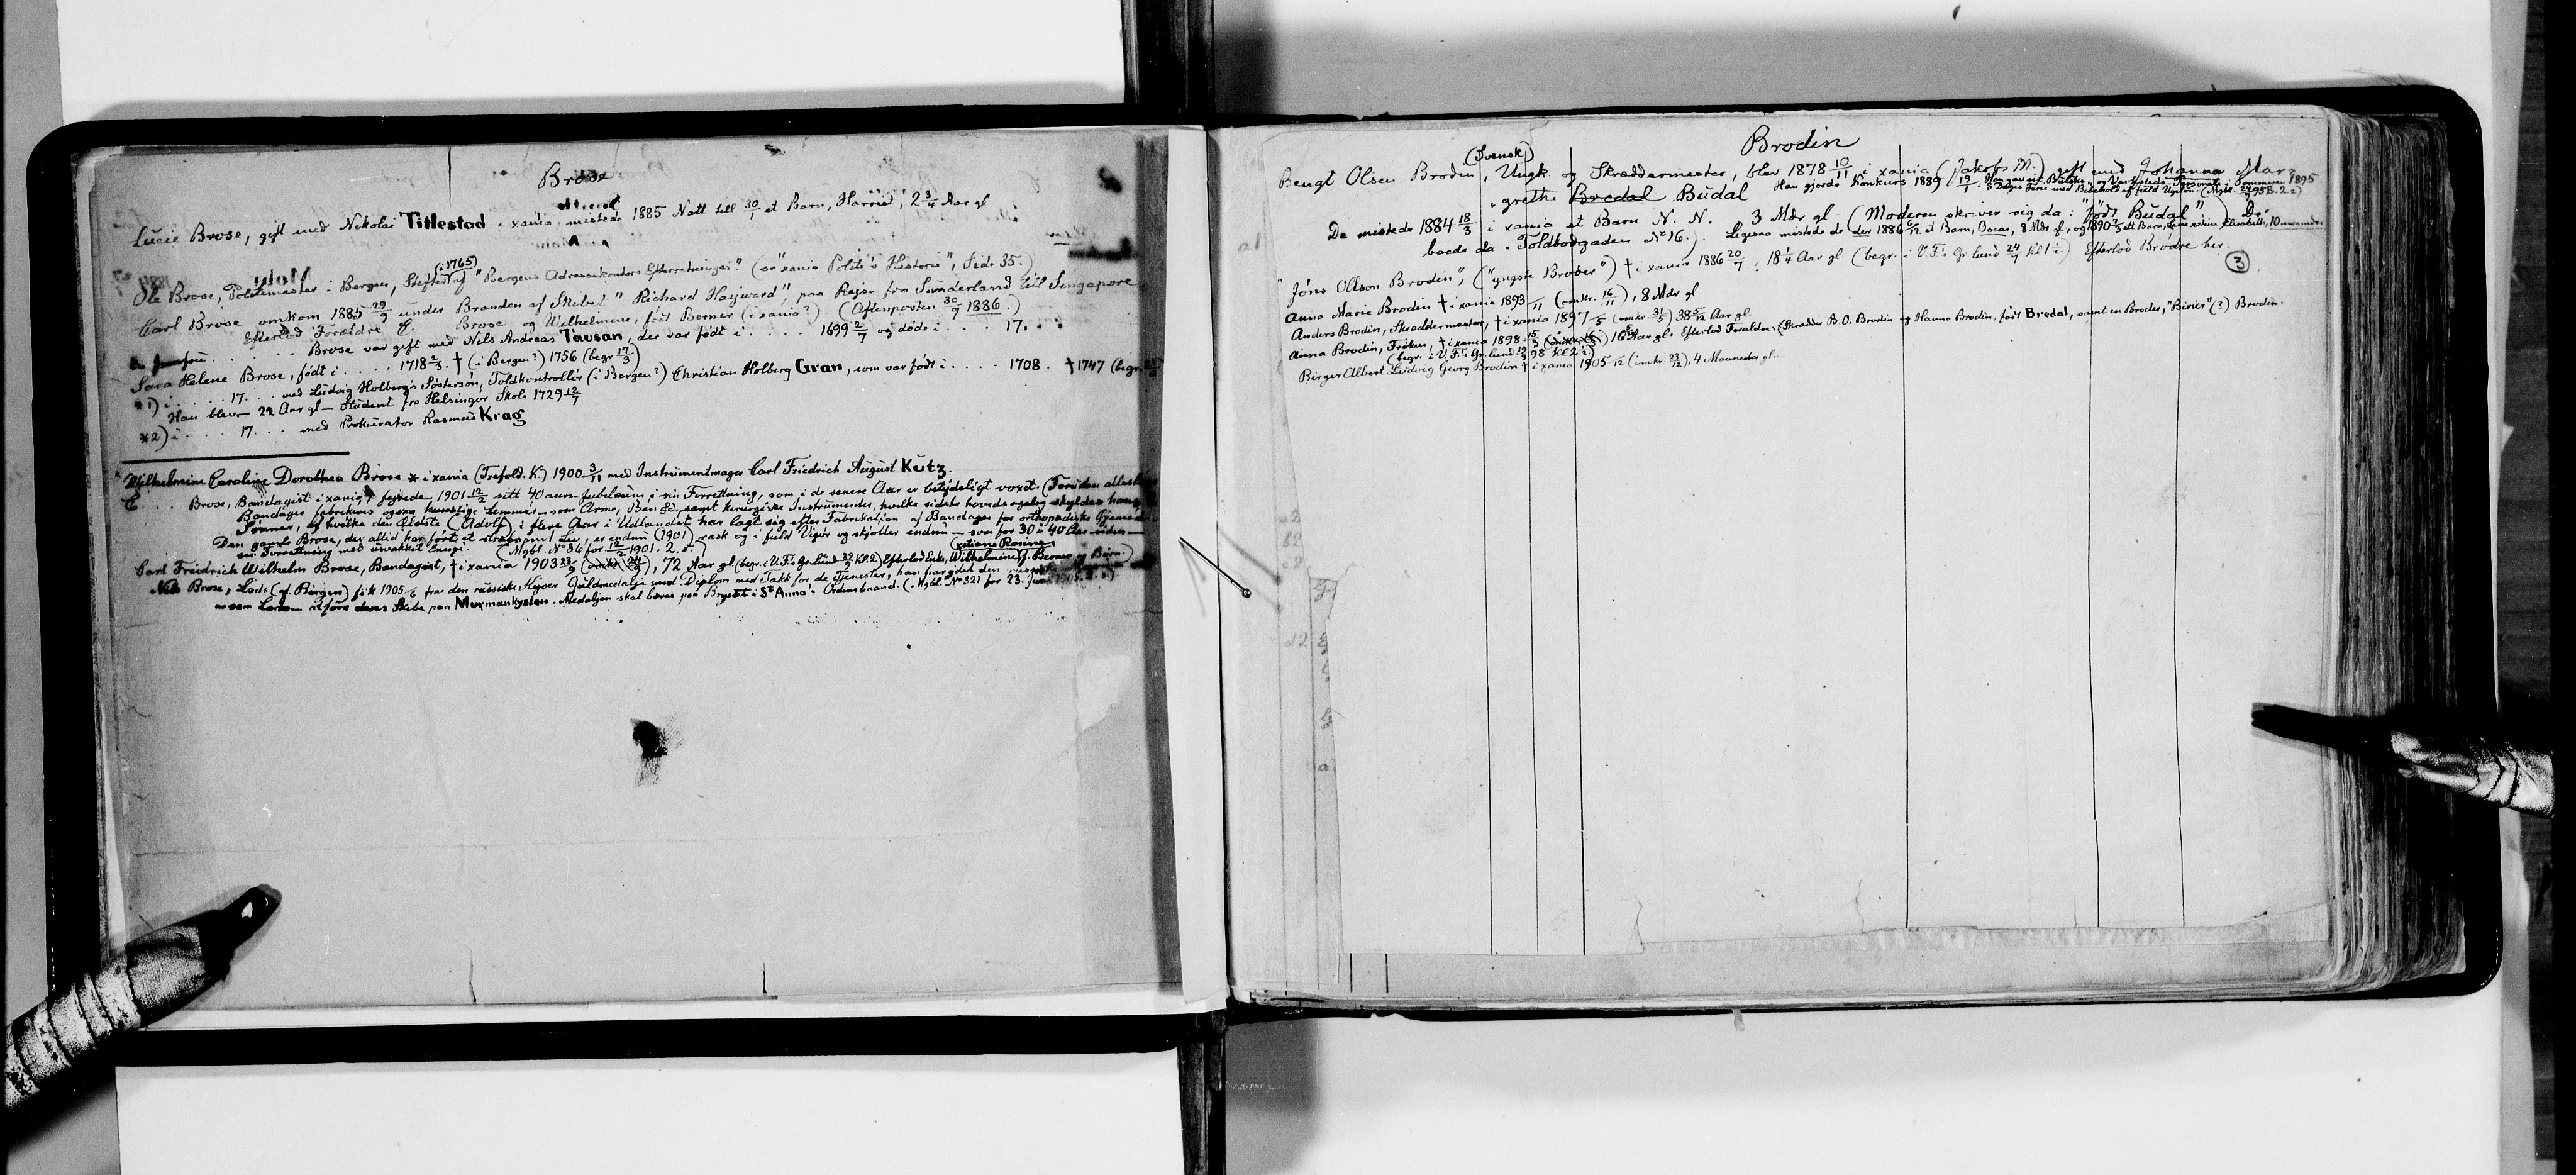 Brose
Lucie Brose, gift med Nikolai Titlestad i xania, mistede 1885 Natt. till 30/1 et Barn, Harriet, 2 3/4 Aar gl
(i 1765)
Ole Brose, Politimester i Bergen, Stifter af "Bergens Adressekontors Efterretninger" (se "xania Politi's Historie", Side 35.)
Carl Brose omkom 1885 29/9 under Branden af Skibet "Richard Hayward", paa Rejse fra Sunderland till Singapore
Efterlod Forældre C. Brose og Wilhelmine, født Berner (i xania?) (Aftenposten 30/9 1886.)
Brose var gift med Nils Andreas Tausan, der var født i . . . . . 1699 2/7 og døde i . . . . 17. . .
Sara Helene Brose, født i . . . . 1718 2/3. † (i Bergen?) 1756 (begr 17/3)
*1) i . . . . 17. . . . med Ludvig Holberg's Søstersøn, Toldkontrollør (i Bergen?) Christian Holberg Gran, som var født i . . . . 1708. † 1747 (begr.
Han blev 22 Aar gl — Student fra Helsingør Skole 1729 12/7
*2) i . . . . 17. . . . med Prokurator Rasmus Krag
Wilhelmine Caroline Dorothea Brose * i xania (Trefold. K.) 1900 3/11 med Instrumentmager Carl Friedrich August Kutz.
C. . . . Brose, Bandagist i xania, fejrede 1901 12/2 sitt 40 aars Jubilæum i sin Forretning, som i de senere Aar er betydeligt voxet. (Foruden alleslags
Bandager fabrikeres ogsaa kunstige Lemmer — som Arme, Ben &c. samt kirurgiske Instrumenter, hvilke sidste hovedsagelig skyldes hans
Sønner, af hvilke den Ældste (Adolf) i flere Aar i Udlandet har lagt sig efter Fabrikation af Bandager for orthopædiske Øjemed
Den gamle Brose, der altid har ført et strævsomt Liv, er endnu (1901) rask og i fuld Vigør og skjøtter endnu — som for 30 à 40 Aar siden —
sin Forretning med usvækket Energi. (Mgbl. No 86 for 12/2 1901. 2. s.)
(xtiane Rosine)
Carl Friedrich Wilhelm Brose, Bandagist, † i xania 1903 23/9 (omkr. 24/9), 72 Aar gl (begr. i V.F.'s Gr. lund 29/9 Kl. 2) Efterlod Enke, Wilhelmine f. Berner og Børn.)
Nils Brose, Lods (af Bergen) fik 1905 /6 fra den russiske Kejser Guldmedalje med Diplom med Takk for de Tjenester, han har ydet den
— som Lods — at føre deres Skibe paa Murmankysten. Medaljen skal bæres paa Brystet i St Anna's Ordensbaand. (Mgbl. No 321 for 23. Juni 1905. 2. s.)
Brodin
(Svensk)
Bengt Olsen Brodin, Ungk. og Skræddermester, blev 1878 10/11 i xania (Jakobs M.) gift med Johanna Mar-
grethe Bredal Budal Han gjorde Konkurs 1889 19/1.
De mistede 1884 18/3 i xania et Barn N. N. 3 Mdr gl. (Moderen skriver sig da: "født Budal") De
boede da i Toldbodgaden No 16.). Ligesaa mistede de der 1886 6/12 et Barn, Oscar, 8 Mdr gl,
"Jöns Ollson Brodin", ("yngste Broder") † i xania 1886 20/7, 18 1/4 Aar gl (begr. i V.F.'s Gr. lund 24/7 Kl 1 1/2) Efterlod Brødre her.
(3)
Anna Marie Brodin † i xania 1893 /11 (omkr. 16/11), 8 Mdr gl
Anders Brodin, Skræddermester, † i xania 1897 /5 (omkr. 31/5) 38 5/12 Aar gl
Anna Brodin, Frøken, † i xania 1898 15/3 16 Aar gl. Efterlod Forældre (Skrædder B. O. Brodin og Hanna Brodin, født Bredal, samt en Broder, "Birier" (?) Brodin.
(begr. i V.F.'s Gr. lund 19/3 98 Kl 2 1/2)
Birger Albert Ludvig Georg Brodin † i xania 1905 /12 (omkr. 23/12), 4 Maaneder gl.